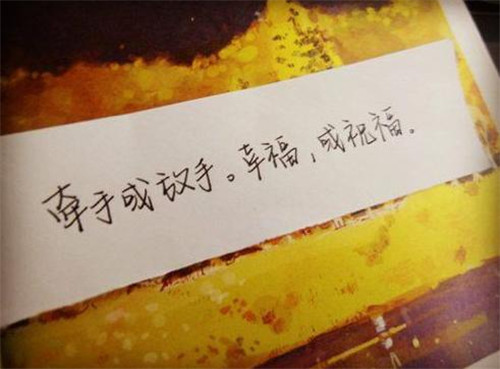 牵手成放手。幸福,成祝福。